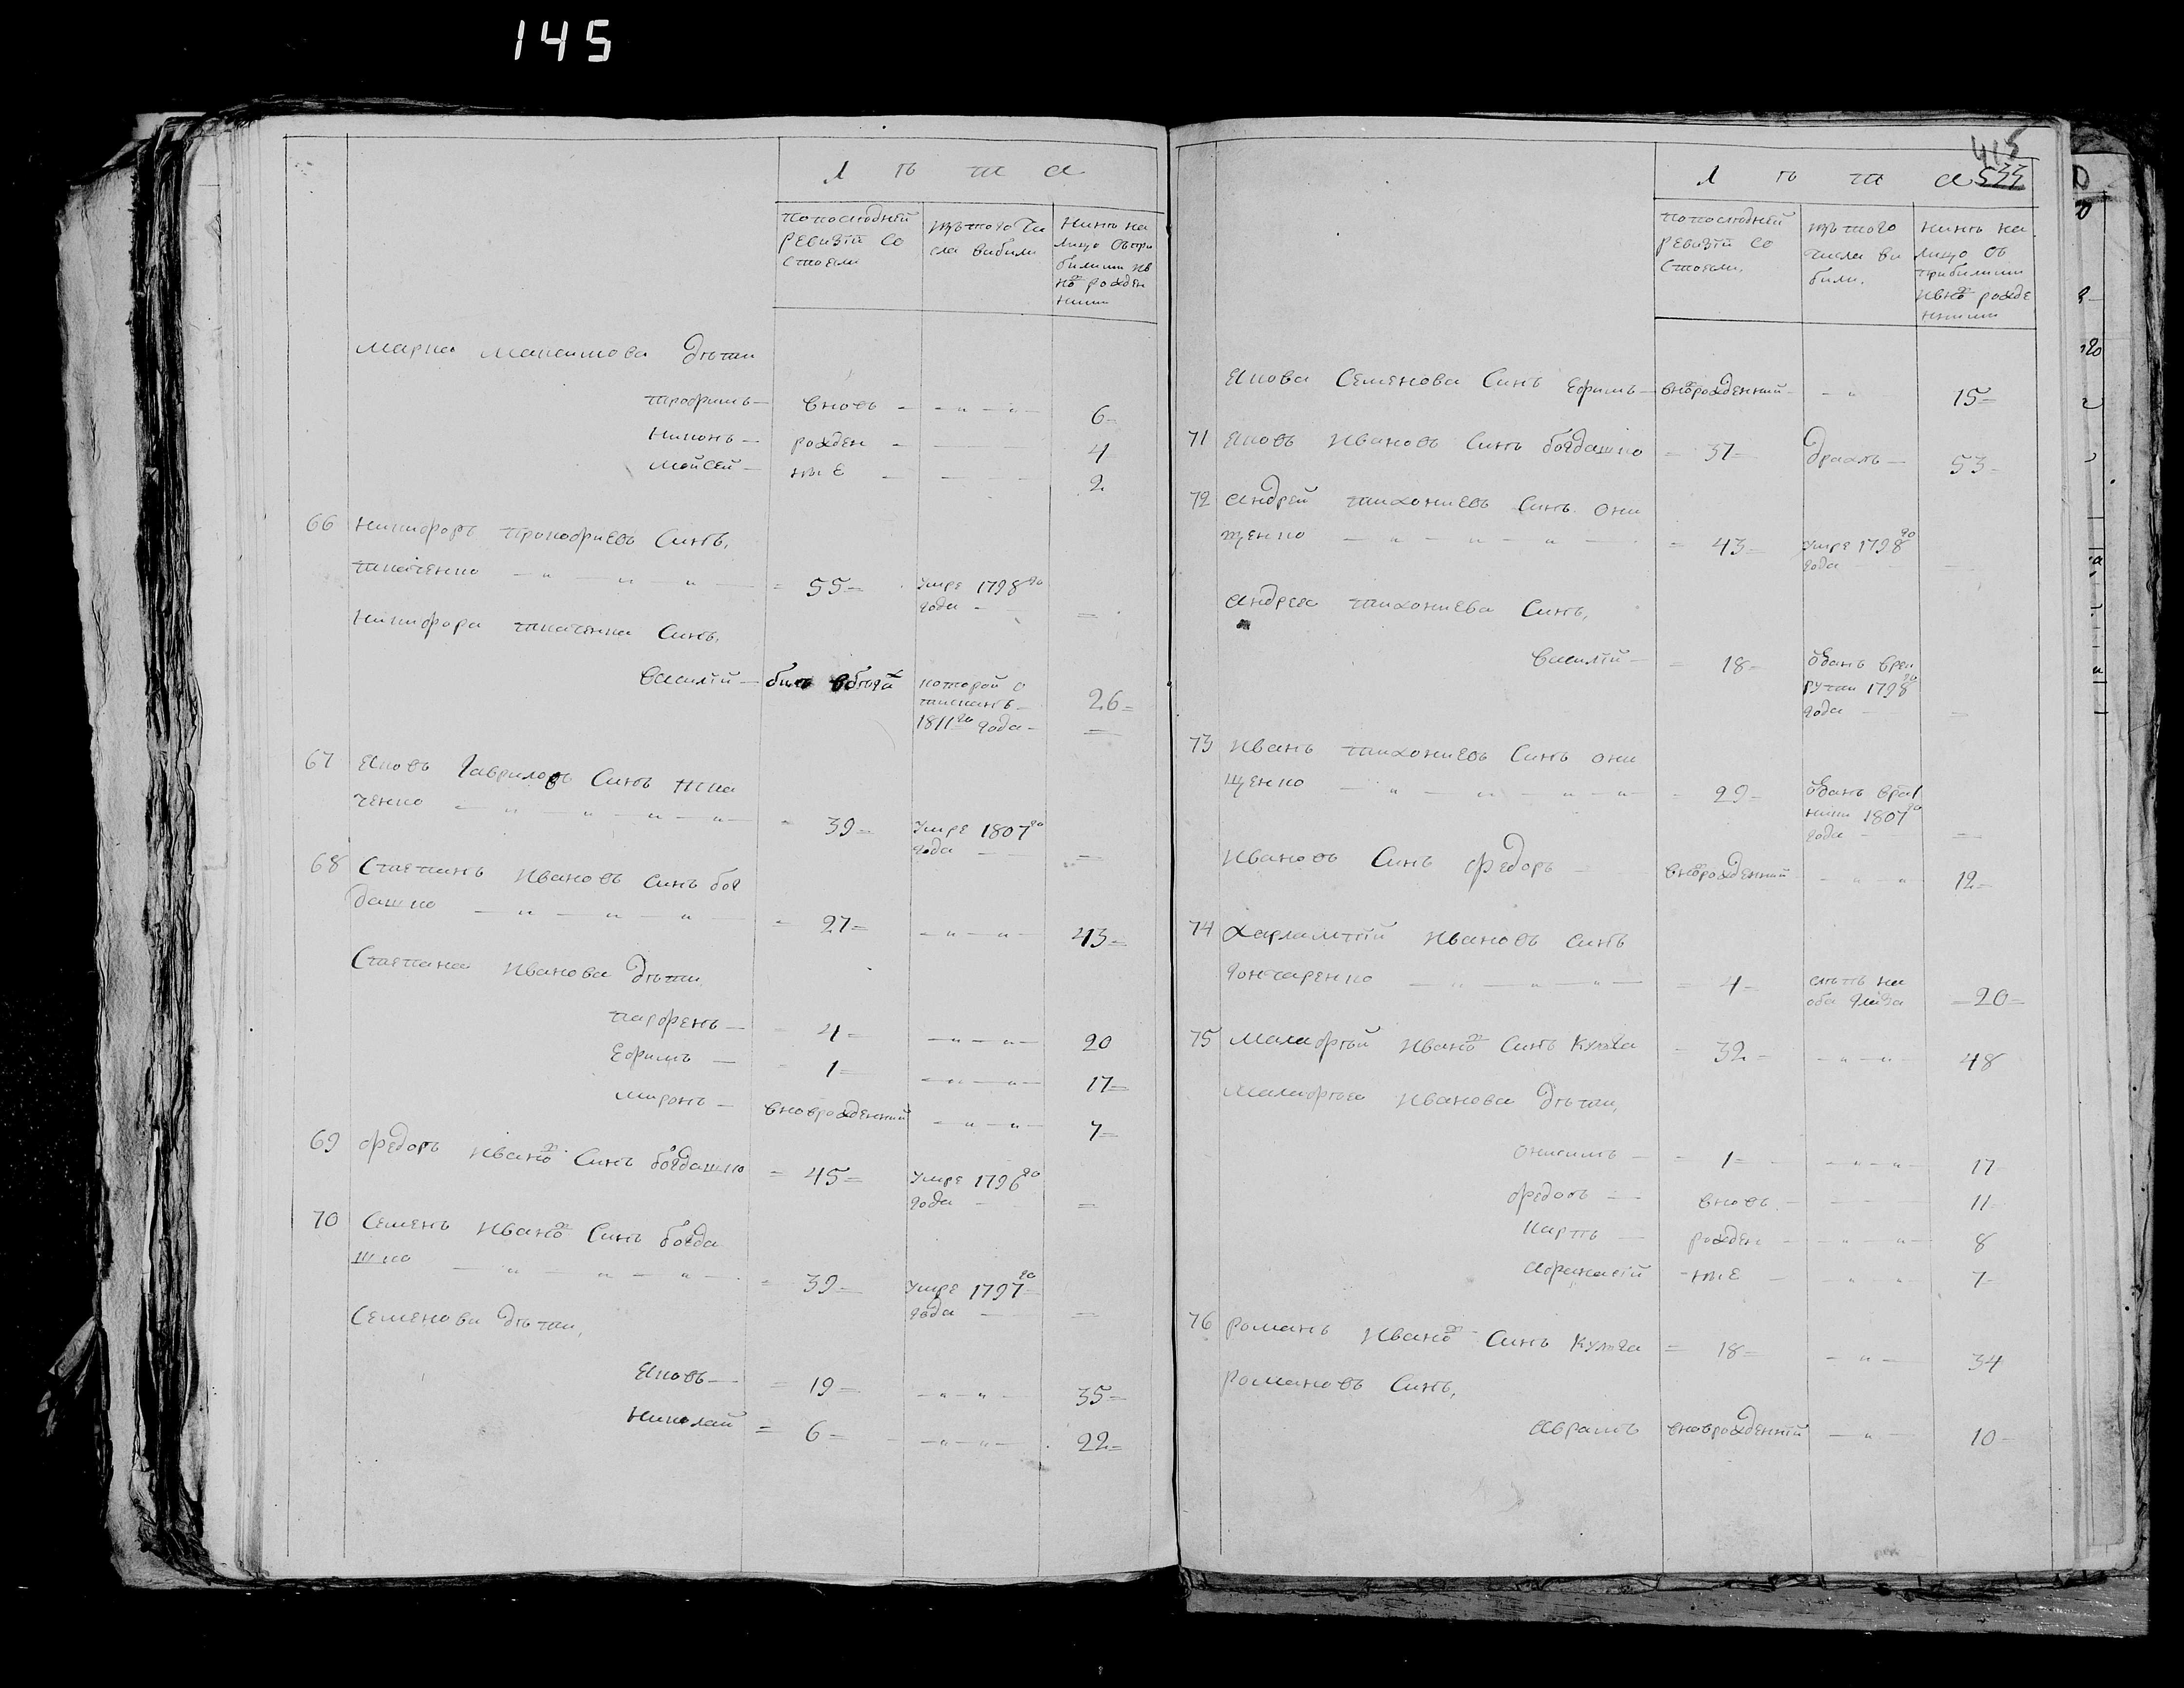 145
Л ѣ т а
попоследней
ревизіи со
стояли
изътого чи
сла выбыли
ныне на
лицо
рожден
Марка Максимова дѣти
трофимъ — вновь — — „ — „ — 6
никонъ — рожден — 4
мойсей — ные — 2
66 никифоръ прокофиевъ Синъ,
ткаченко — „ — „ — „ — 55 умре 1798го
года —
никифора ткаченка Синъ,
василій — бытъ вбѣгах которой о
тисканъ 26
1811го года —
67 Яковъ Гавриловъ Синъ тка
ченко — „ — „ — „ — „ — 39 умре 1807го
года —
68 Степанъ Ивановъ Синъ бог
дашко — „ — „ — „ — 27 — „ — „ — 43
Степана Иванова дѣти,
парфенъ — 4 — „ — „ — 20
Ефимъ — 1 — „ — „ — 17
миронъ — вноврожденний — „ — „ — 7
69 федоръ Ивановъ Синъ богдашко 45 умре 1796го
года —
70 Семенъ Ивановъ Синъ богда
шко — „ — „ — „ — 39 умре 1797го
года —
Семенова дѣти,
Яковъ — 19 — „ — „ 35
николай 6 — „ — „ — 22
415
533
Л ѣ т а
попоследней
ревизіи со
стояли,
изътого
числа вы
были,
ныне на
лицо
рожде
Якова Семенова Синъ Ефимъ — вноврожденний — — „ 15
71 Яковъ Ивановъ Синъ богдашко 37 53
72 Андрей тихониевъ Синъ они
щенко — „ — „ — „ — 43 умре 1798го
года —
Андрея тихониева Синъ,
василій — 18 ѿданъ врек
рути 1798го
года —
73 Иванъ тихониевъ Синъ они
щенко — „ — „ — „ — „ — 29 ѿданъ
1807го
года —
Ивановъ Синъ федоръ — вноврожденний — „ — „ 12
74 Харлампій Ивановъ Синъ
гончаренко — „ — „ — „ — 4 слѣпъ на
оба глаза 20
75 Малафѣй Ивановъ Синъ Кулага 32 — „ — „ — 48
Малафѣя Иванова дѣти,
онисимъ — 1 — „ — „ — 17
федоръ — вновь — 11
карпъ — рожден — „ — „ — 8
Афанасій — ные — „ — „ 7
76 Романъ Ивановъ Синъ Кулага 18 — „ — 34
Романовъ Синъ,
Аврамъ вноврожденній — „ — 10